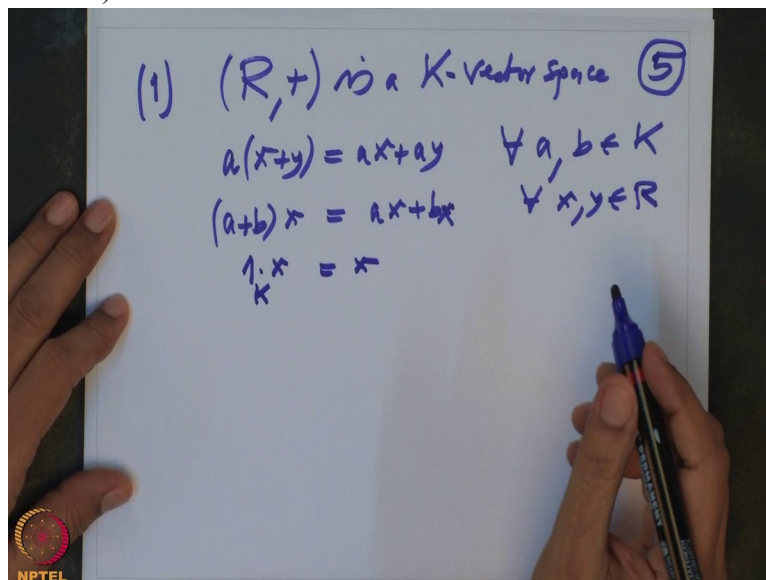 (1) (R,+) is a K-vector space ⑤
a(x+y) = ax+ay ∀ a, b ∈ K
(a+b)x = ax+bx ∀ x, y ∈ R
1·x = x
K
PERMANENT
NPTEL